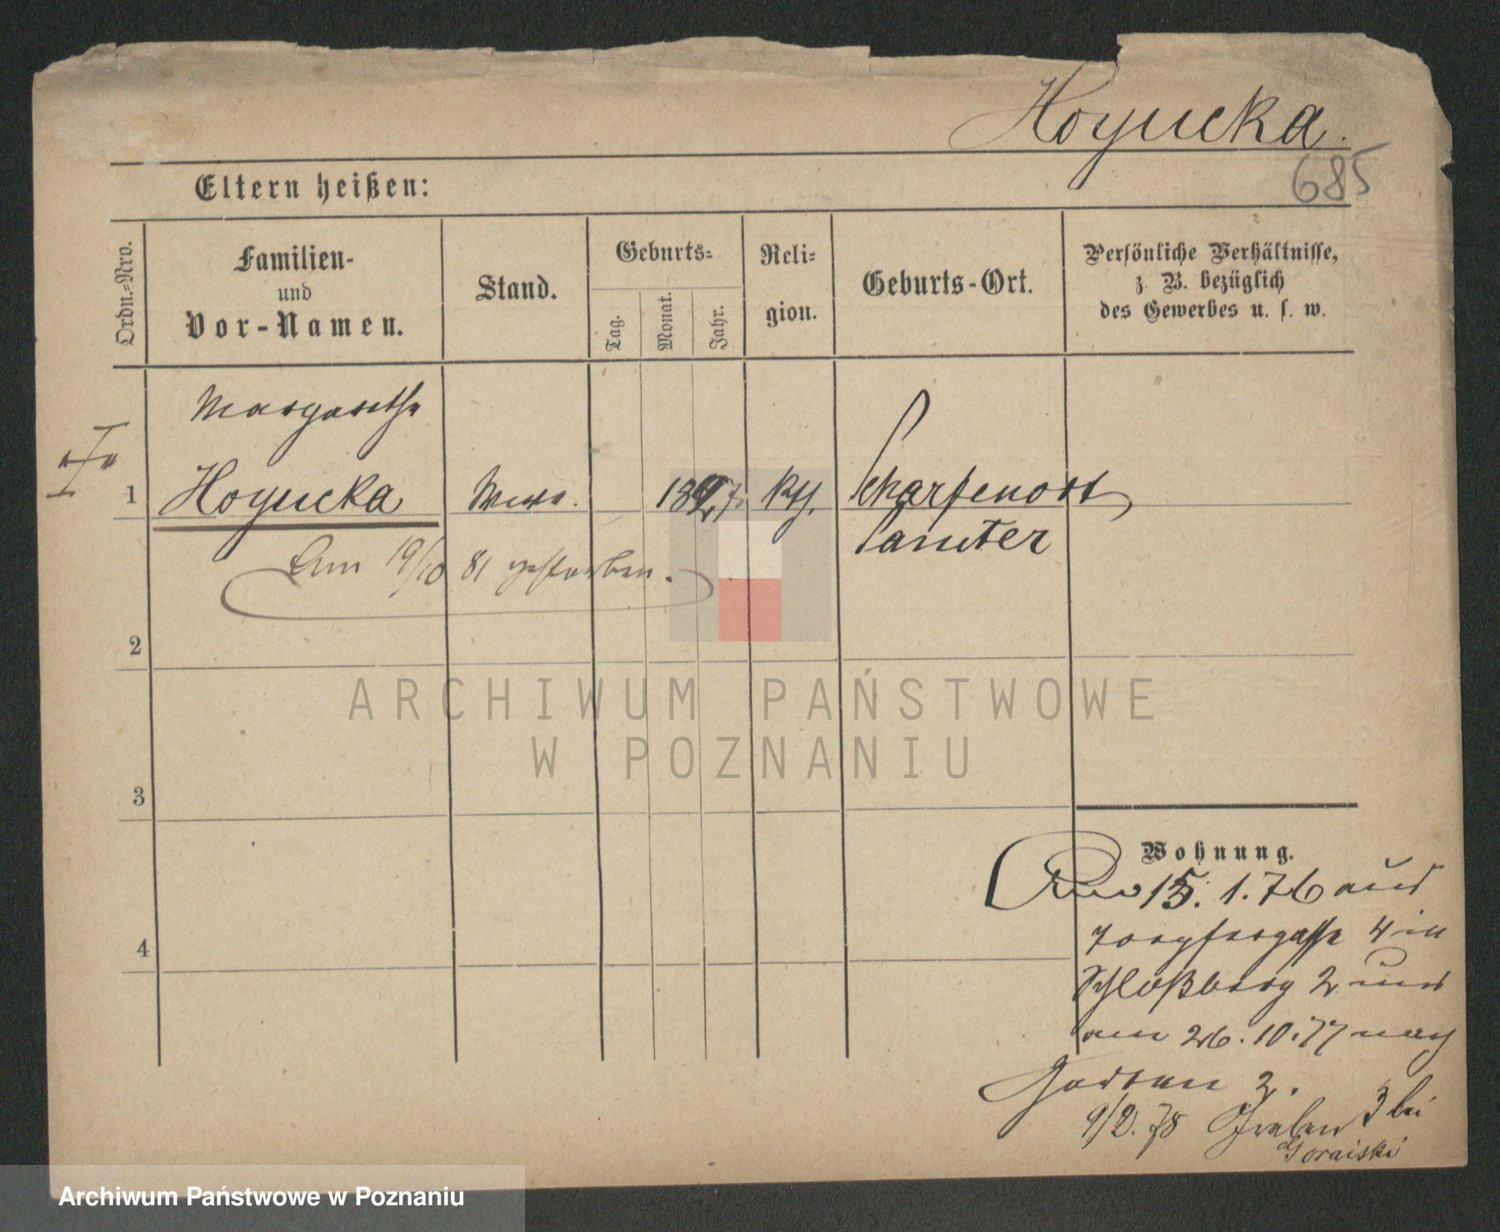 Hoyucka.
685
Eltern heißen:
Ordn.-Nro.
Familien-
und
Vor-Namen.
Stand.
Geburts-
Tag.
Monat.
Jahr.
Reli-
gion.
Geburts-Ort.
Persönliche Verhältnisse,
z. B. bezüglich
des Gewerbes u. s. w.
Margarethe
1 Hoyucka 18 7. kth. Scharfenort
Samter
Am 19/10 81 gestorben.
2
ARCHIWUM PAŃSTWOWE
W POZNANIU
3
Wohnung.
15. 1. 76 aus
4 in
4
Schloßberg 2 und
am 26. 10. 77 nach
Garten 2.
9/2. 78 Graben 3 bei
Goraiski
Archiwum Państwowe w Poznaniu